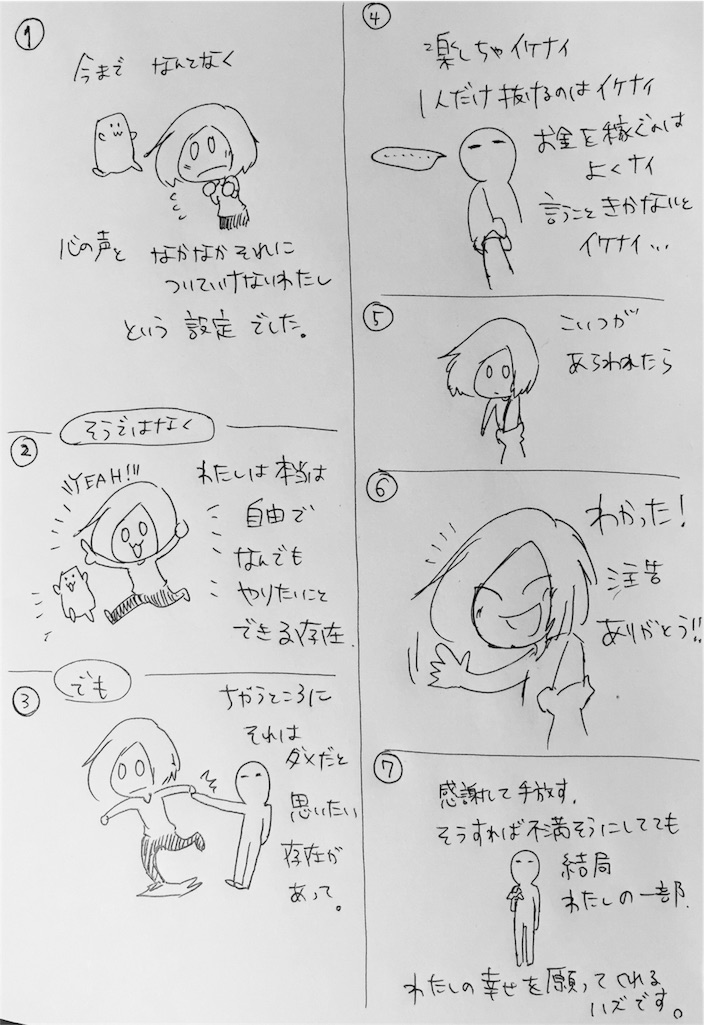 ①
今まで なんてなく
心の声と なかなかそれに
ついていけないわたし
という 設定 でした。
そうではなく
②
YEAH!!
わたしは本当は
自由で
なんでも
やりたいこと
できる存在.
でも
③
ちがうところに
それは
ダメだと
思いたい
存在が
あって。
④
楽しちゃイケナイ
1人だけ抜けるのはイケナイ
‥‥‥
お金を稼ぐのは
よくナイ
言うこときかないと
イケナイ…
⑤
こいつが
あらわれたら
⑥
わかった!
注告
ありがとう!!
⑦
感謝して手放す.
そうすれば不満そうにしてても
結局
わたしの一部.
わたしの幸せを願ってくれる
ハズです。